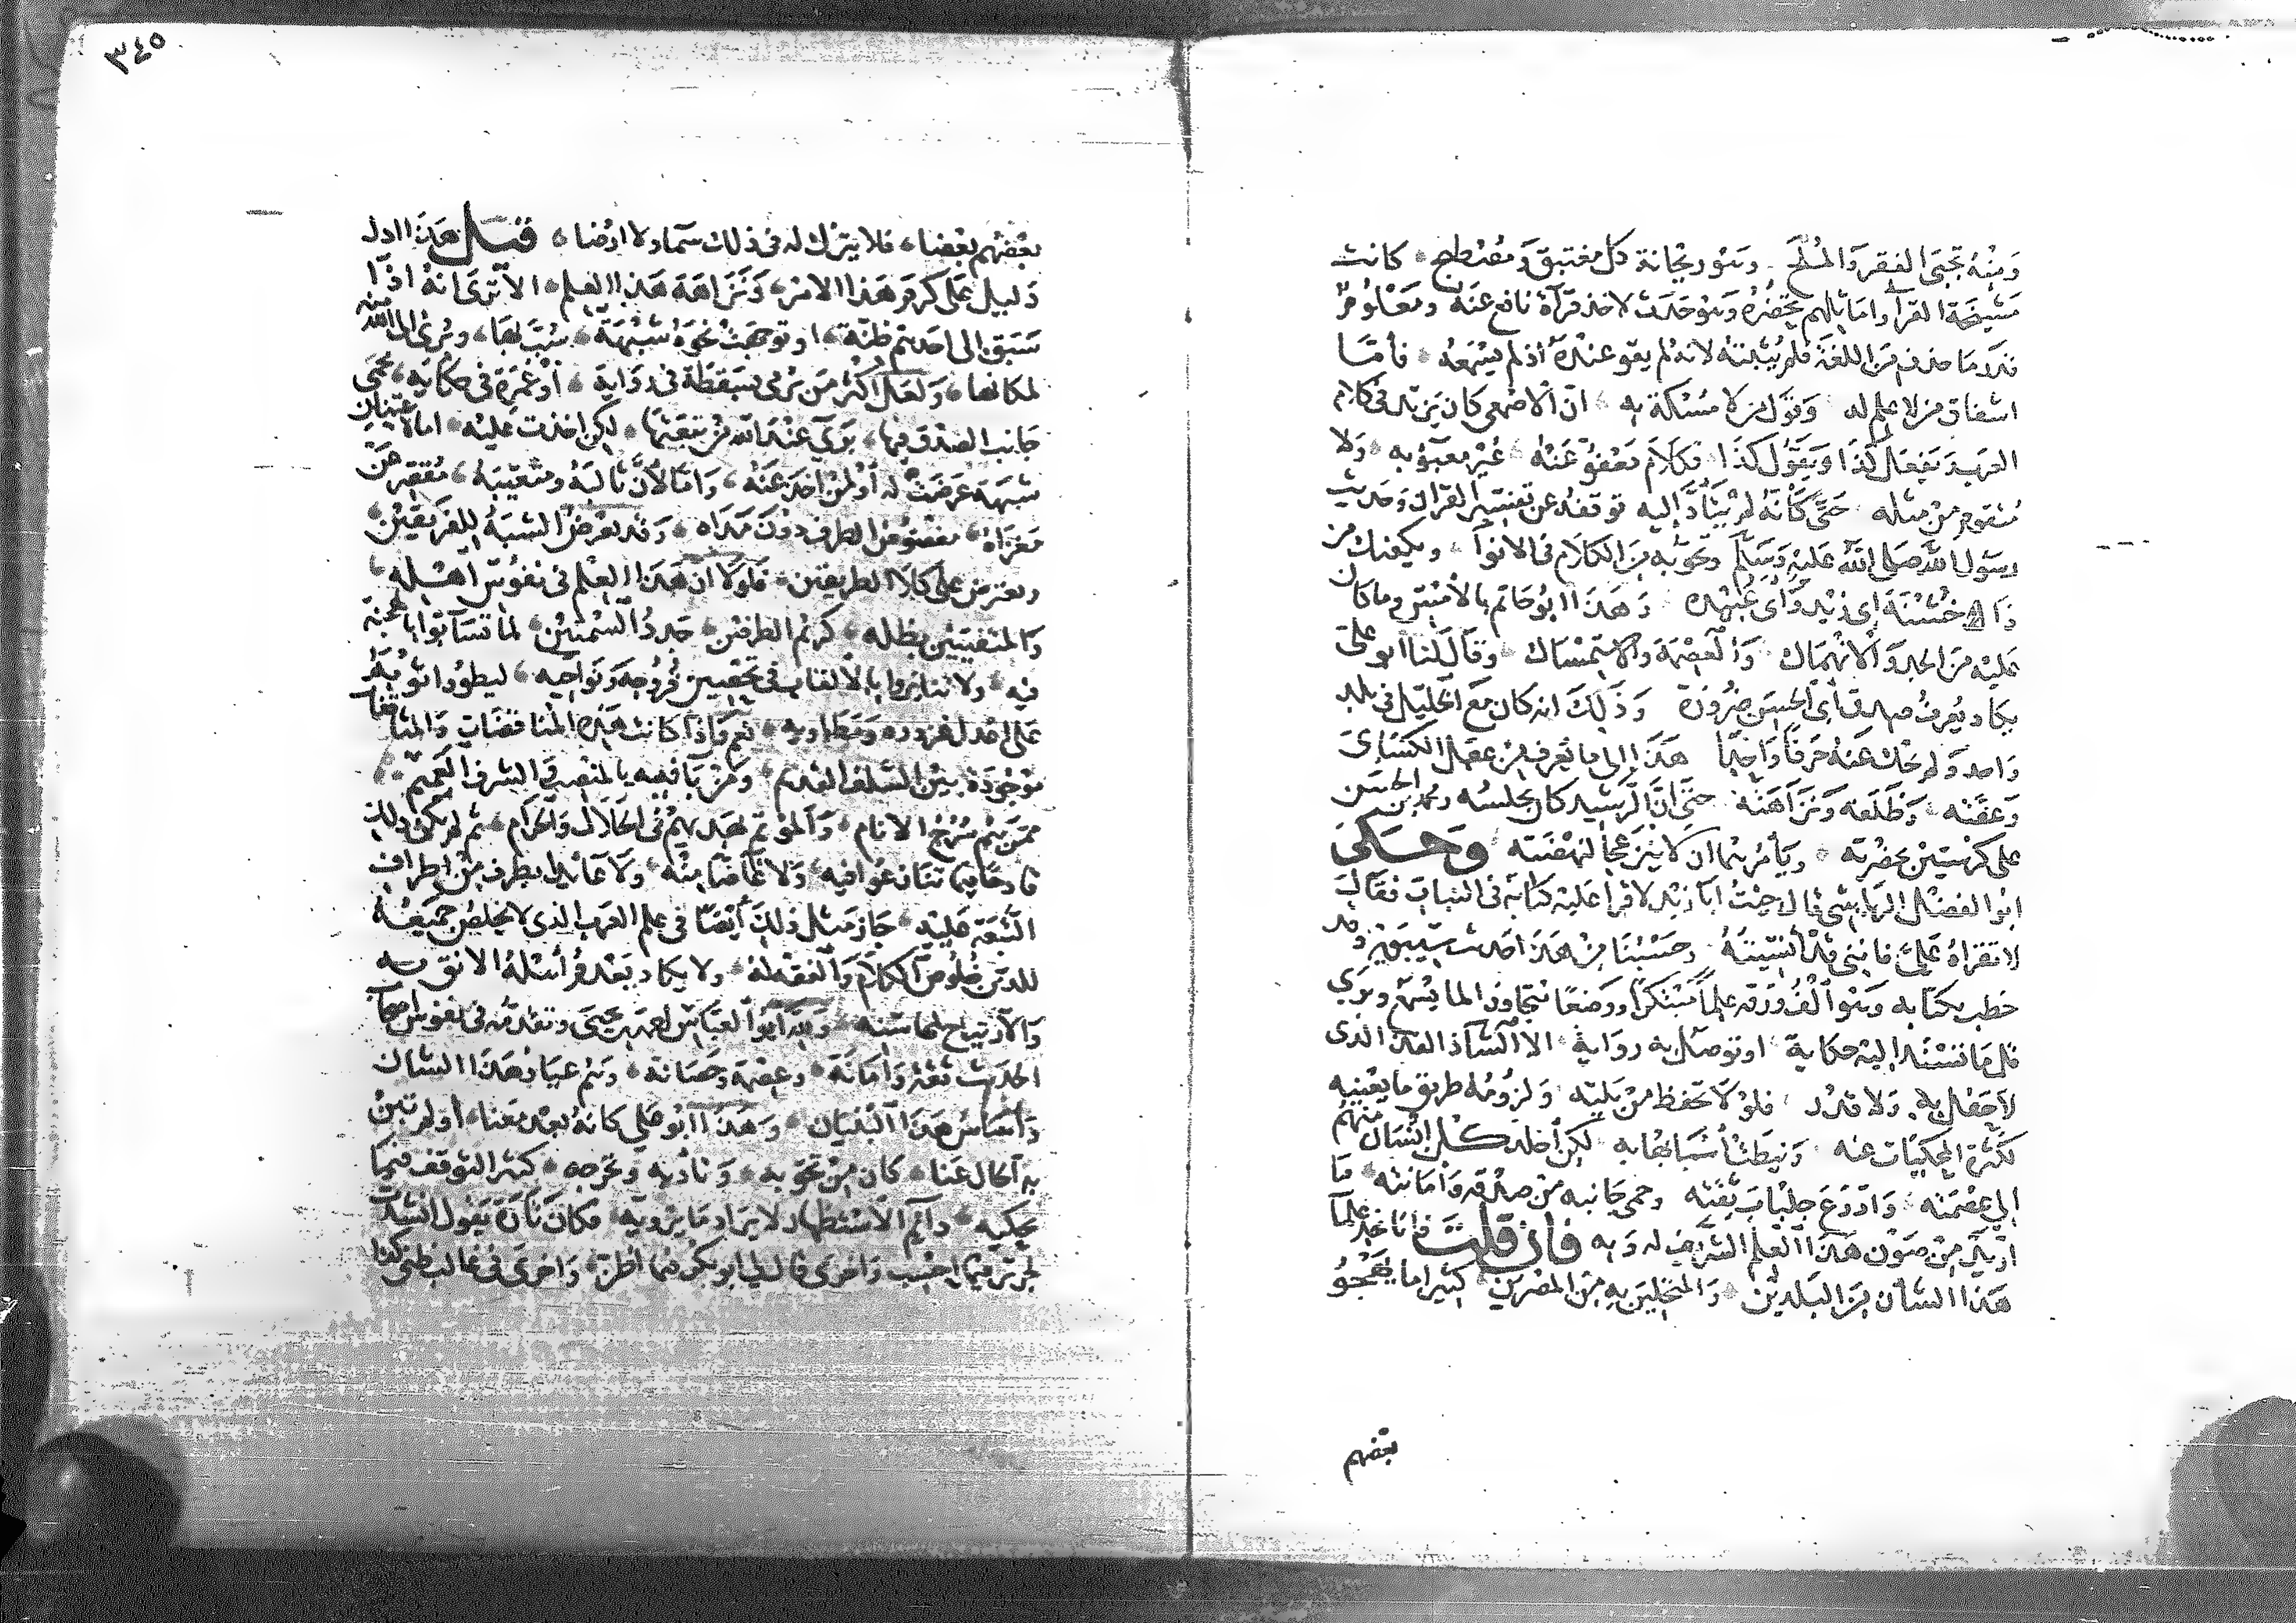 ومنه تجبى الفقر والملح وهو ريحانة كل مغتبق ومصطبح كانت
مشيخة القراء وأماثلهم تحضره وهو حدث لأخذ قراءة نافع عنه ومعلوم
قدر ما حذف من اللغة فلم يثبته لأنه لم يقو عنده إذ لم يسمعه فأما
إسفاف من لا علم له وقول من لا مسكة به إن الأصمعي كان يزيد في كلام
العرب ويفعل كذا ويقول كذا فكلام معفو عنه غير معبوء به ولا
منقوم من مثله حتى كأنه لم يتأد إليه توقفه عن تفسير القرآن وحديث
رسول الله صلى الله عليه وسلم وتحوبه من الكلام في الأنواء ويكفيك من
ذا خشنة أبي زيد وأبي عبيدة وهذا أبو حاتم بالأمس وما كان
عليه من الجد والانهماك والعصمة والاستمساك وقال لنا أبو علي
يكاد يعرف صدق أبي الحسن ضرورة وذلك أنه كان مع الخليل في بلد
واحد ولم يحك عنه حرفا واحدا هذا إلى ما يعرف من عقل الكسائي
وعفته وظلفه ونزاهته حتى إن الرشيد كان يجلسه ومحمد بن الحسن
على كرسيين بحضرته ويأمرهما أن لا ينزعجا لنهضته وحكى
أبو الفضل الرياشي قال جئت أبا زيد لأقرأ عليه كتابه في النبات فقال
لا تقرأه علي فإني قد أنسيته وحسبنا من هذا حديث سيبويه وقد
خطب بكتابه وهو ألف ورقة علما مبتكرا ووضعا متجاوزا لما يسمع ويرى
قل ما تسند إليه حكاية أو توصل به رواية إلا الشاذ الفذ الذي
لا حفل به ولا قدر فلولا تحفظ من يليه ولزومه طريق ما يعنيه
لكثرت الحكايات عنه ونيطت أسبابها به لكن أخلد كل إنسان منهم
إلى عصمته وادرع جلباب ثقته وحمى جانبه من صدقه وأمانته ما
أريد من صون هذا العلم الشريف له وبه فإن قلت فإنا نجد علماء
هذا الشأن من البلدين والمتحلين به من المصرين كثيرا ما يهجو
بعضهم
٣٤٥
بعضهم بعضا فلا يترك له في ذلك سماء ولا أرضا قيل هذا أدل
دليل على كرم هذا الأمر ونزاهة هذا العلم ألا ترى أنه إذا
سبق إلى أحدهم ظنة أو توجهت نحوه شبهة سب بها وبرئ إلى الله منه
لمكانها ولعل أكثر من يرمى بسقطة في رواية أو غمزة في حكاية محمي
جانب الصدق فيها بريء عند الله من تبعتها لكن أخذت عليه إما لاعتنان
شبهة عرضت له أو لمن أخذ عنه وإما لأن ثالبه ومتعيبه مقصر عن
مغزاه مغضوض الطرف دون مداه وقد تعرض الشبه للفريقين
ويعترض على كلا الطريقين فلولا أن هذا العلم في نفوس أهله
والمتفيئين بظله كريم الطرفين جدد السمتين لما تسابوا بالهجنة
فيه ولا تنابزوا بالألقاب في تحصين فروجه ونواحيه ليطووا ثوبه
على أعدل غروره ومطاويه نعم وإذا كانت هذه المناقضات والمثاقفات
موجودة بين السلف القديم ومن باء فيه بالمنصب والشرف العميم
ممن هم سرج الأنام والمؤتم بهديهم في الحلال والحرام ثم لم يكن ذلك
قادحا فيما تنازعوا فيه ولا غاضا منه ولا عائدا بطرف من أطراف
التبعة عليه جاز مثل ذلك أيضا في علم العرب الذي لا يخلص جميعه
للدين خلوص الكلام والفقه له ولا يكاد يعدم أهله الأنق به
والارتياح لمحاسنه ولله أبو العباس أحمد بن يحيى وتقدمه في نفوس أصحاب
الحديث ثقة وأمانة وعصمة وحصانة وهم عيار هذا الشأن
وأساس هذا البنيان وهذا أبو علي كأنه بعد معنا أو لم تبن
به الحال عنا كان من تحوبه وتأدبه وتحرجه كثير التوقف فيما
يحكيه دائم الاستظهار لإيراد ما يرويه فكان تارة يقول أنشدت
لجرير فيما أحسب وأخرى قال لي أبو بكر فيما أظن وأخرى في غالب ظني كذا